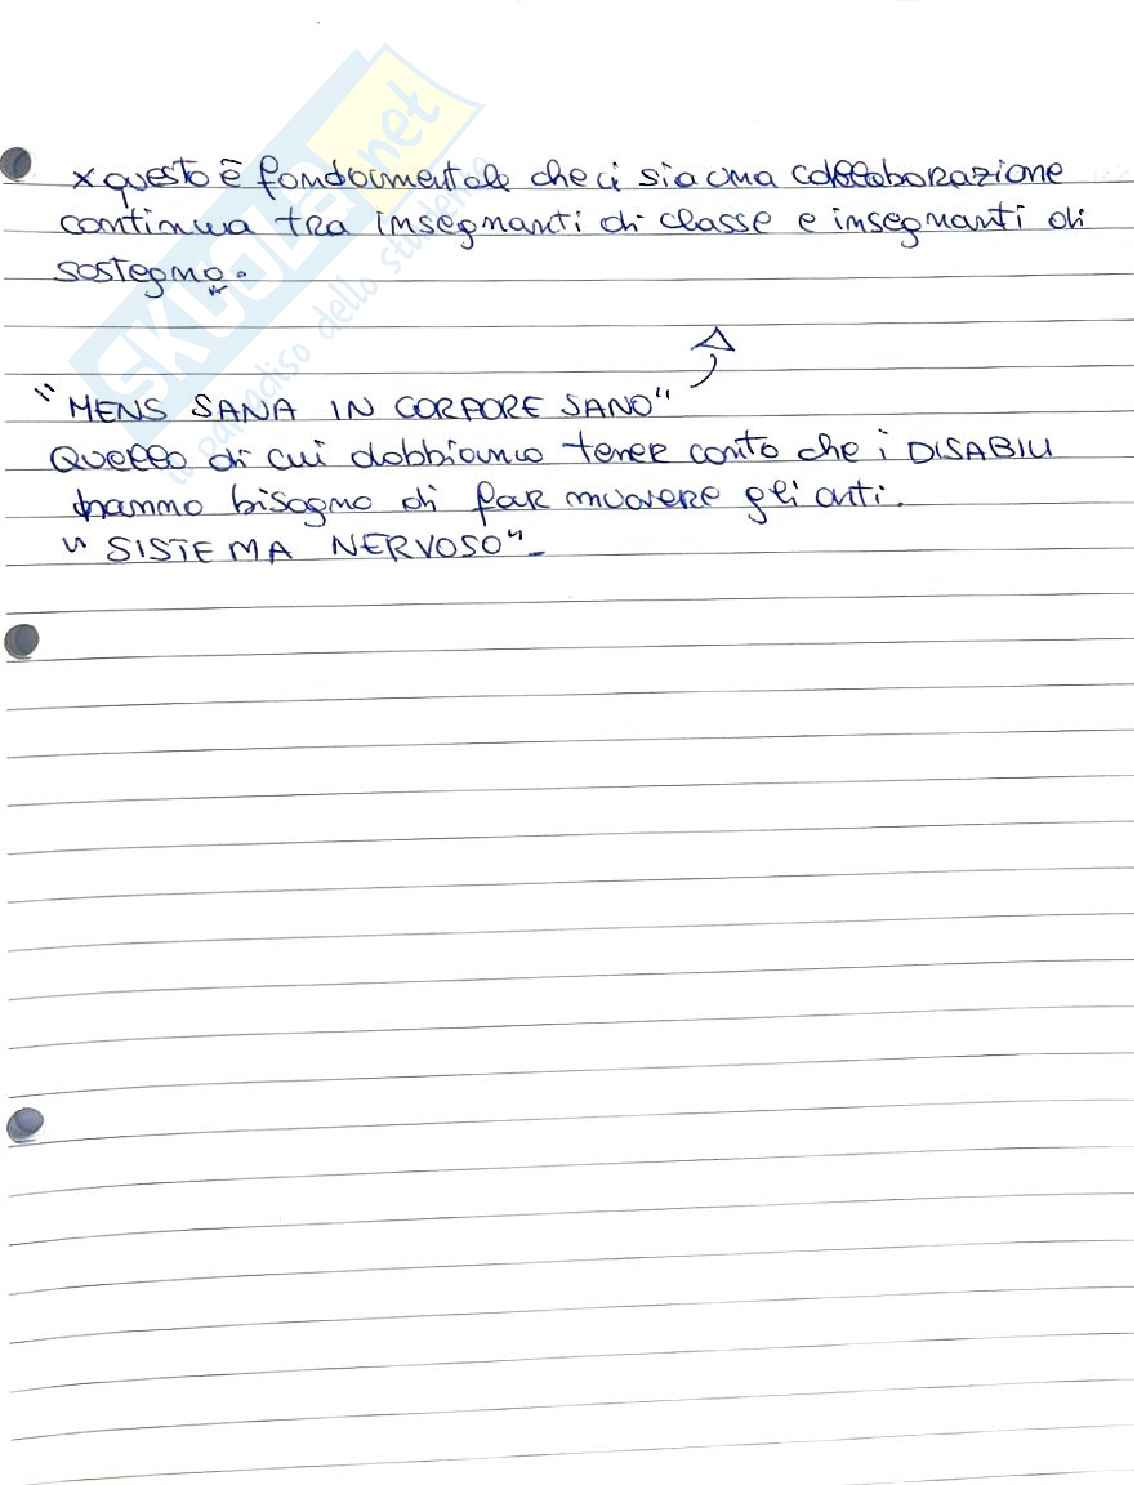 SKUOLA.net
il paradiso dello studente
x questo è fondamentale che ci sia una collaborazione
continua tra insegnanti di classe e insegnanti di
sostegno.
"MENS SANA IN CORPORE SANO"
Quello di cui dobbiamo tener conto che i DISABILI
hanno bisogno di far muovere gli arti.
"SISTEMA NERVOSO"-